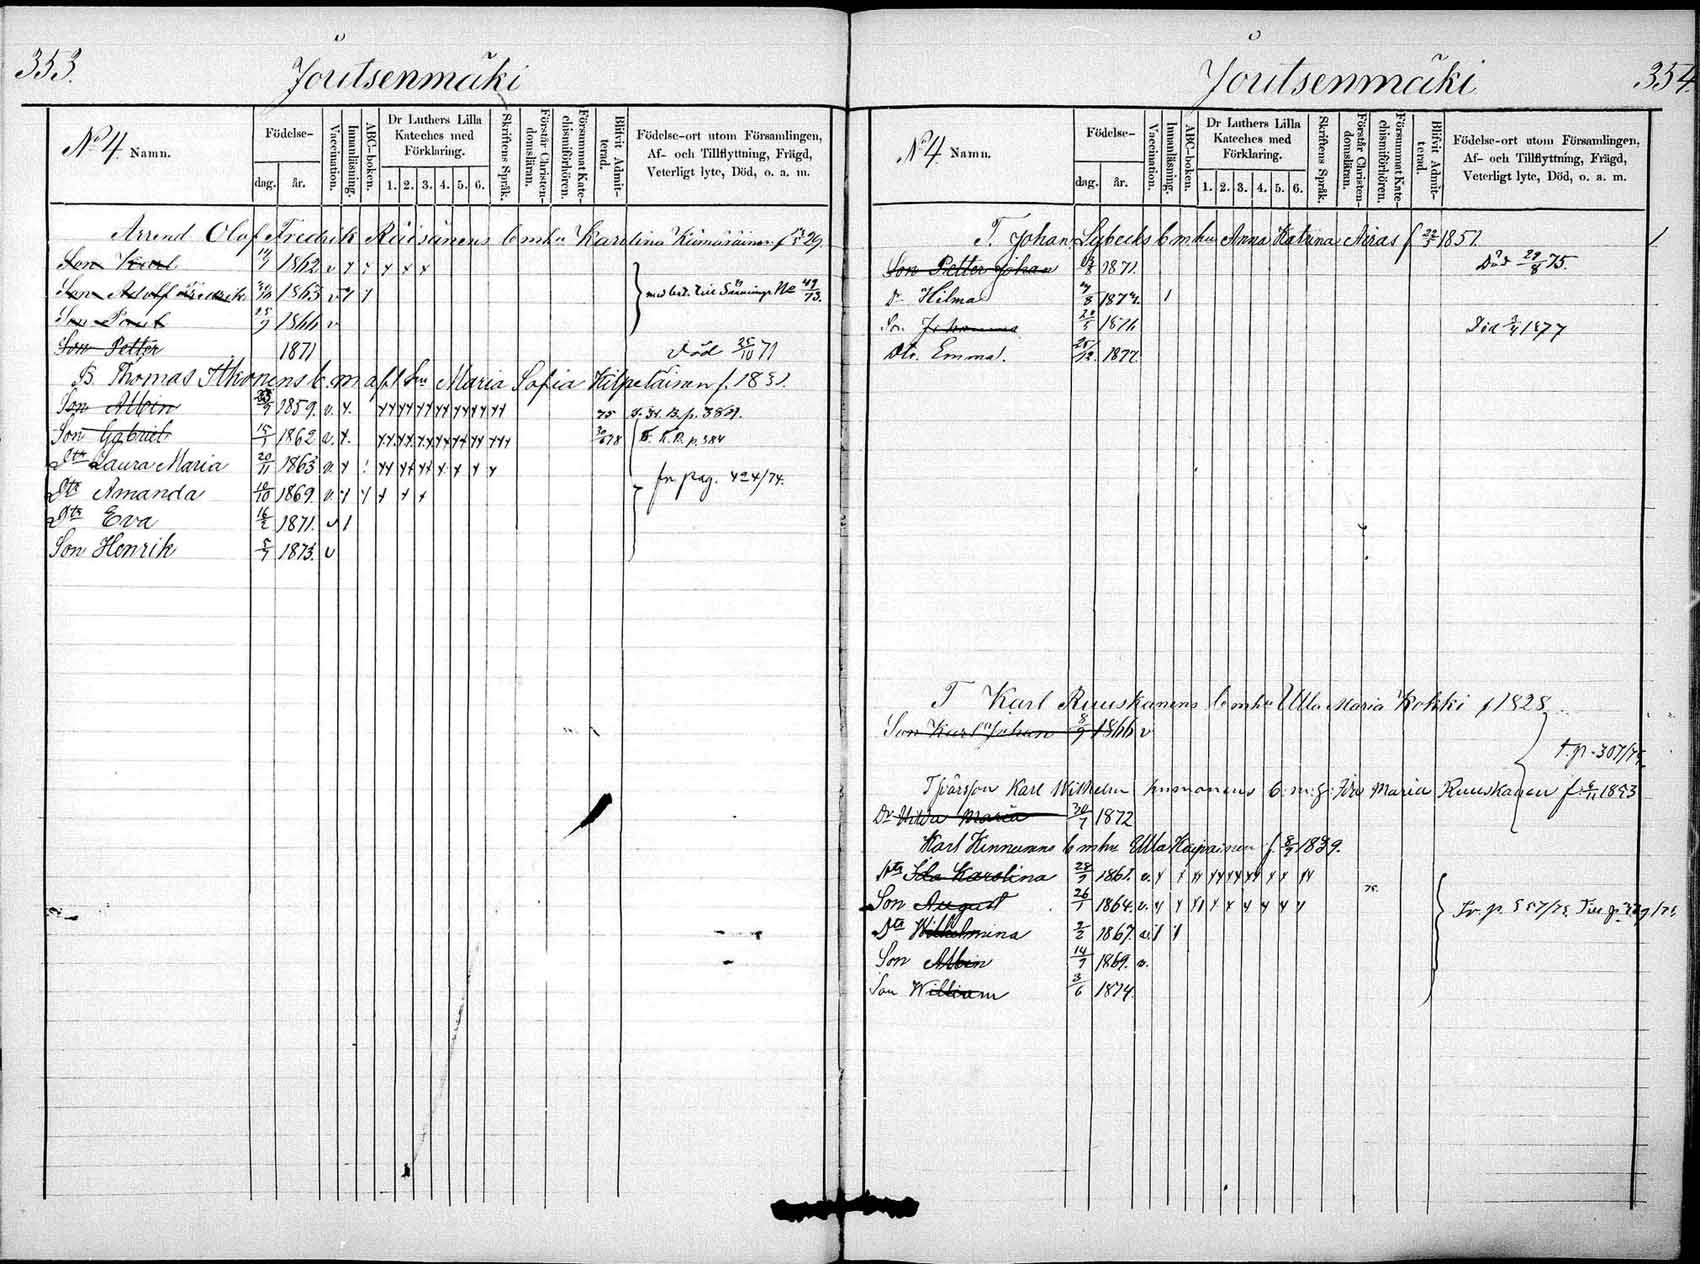 353.
Joutsenmäki
No 4. Namn.
Födelse-
dag.
år.
Vaccination.
Innanläsning.
ABC-boken.
Dr Luthers Lilla
Kateches med
Förklaring.
1. 2. 3. 4. 5. 6.
Skriftens Språk.
Förstår Christen-
domsläran.
Försummat Kate-
chismiförhören.
Blifvit Admit-
terad.
Födelse-ort utom Församlingen,
Af- och Tillflyttning, Frägd,
Veterligt lyte, Död, o. a. m.
Arrend Olof Fredrik b m hu Karolina f. 29.
Son Karl 1862 v
Son Adolf Fredrik 1863 v
Son 1866 v
Son Petter 1871 död 25/10 71
B. Thomas b m afl Maria Sofia Kilpeläinen f. 1831.
Son Albin 1859. v. 75
Son Gabriel 15/1 1862 v.
Dtr Laura Maria 20/11 1863 v. fr. pag. 424/74.
Dtr Amanda 1869. v.
Dtr Eva 16/2 1871. v
Son Henrik 5/7 1873. v
354
Joutsenmäki
No 4 Namn.
Födelse-
dag.
år.
Vaccination.
Innanläsning.
ABC-boken.
Dr Luthers Lilla
Kateches med
Förklaring.
1. 2. 3. 4. 5. 6.
Skriftens Språk.
Förstår Christen-
domsläran.
Försummat Kate-
chismiförhören.
Blifvit Admit-
terad.
Födelse-ort utom Församlingen,
Af- och Tillflyttning, Frägd,
Veterligt lyte, Död, o. a. m.
T. Johan Sybecks b m hu Anna Katrina Airas f 22/5 1851.
Son Petter Johan 1871. Död 29/8 75.
Dr Hilma 1874.
Son 20/5 1876 Död 1877
Dtr. Emma. 25/12. 1877.
T Karl Ruuskanens b m hu Ulla Maria Kokki f 1828
Son Karl Johan 8/9 1866 v
t. p. 307/75
Karl Wilhelm b. m. Maria Ruuskanen f. 6/11 1853
Dr Maria 30/7 1872
Karl Kinnunens b m hu Ulla Kaipainen f. 1839.
Dtr Ida Karolina 28/7 1861. v.
Son August 26/1 1864. v.
Dtr Wilhelmina 2/2 1867. v.
Son Albin 14/7 1869. v.
Son William 3/6 1874.